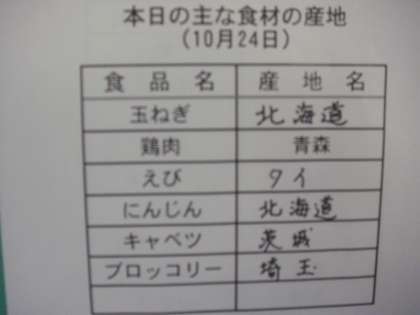 本日の主な食材の産地
(10月24日)
食品名 産地名
玉ねぎ 北海道
鶏肉 青森
えび タイ
にんじん 北海道
キャベツ 茨城
ブロッコリー 埼玉